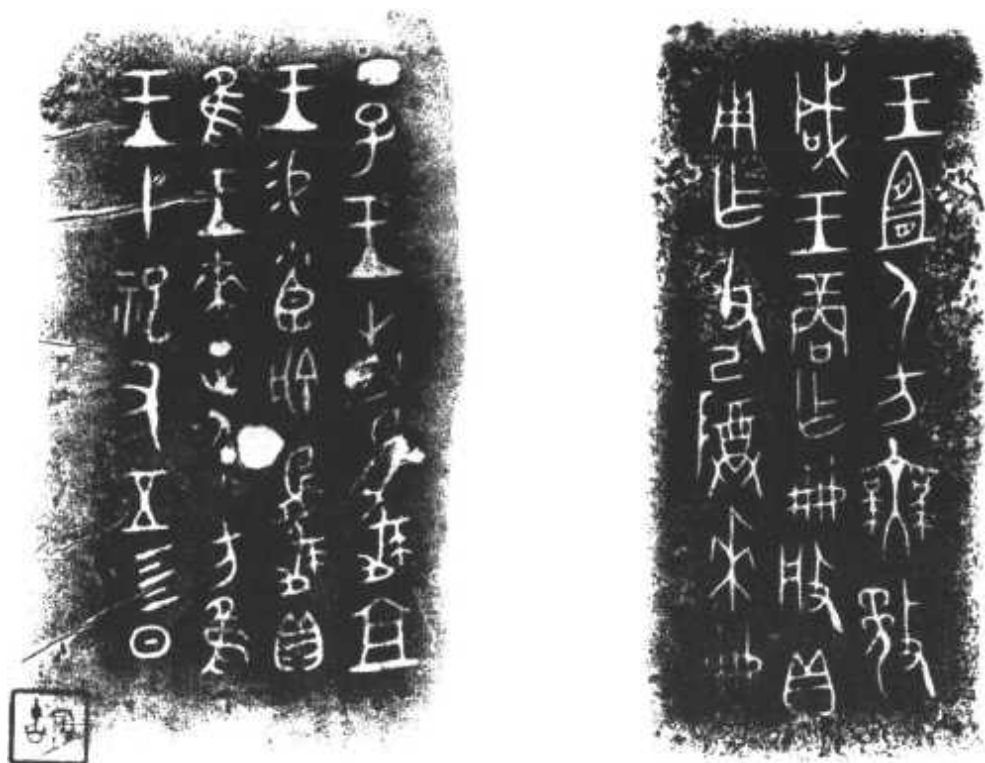 王宜人方無敄
咸王商乍冊般貝
用乍父己尊來冊
丁巳王省夔且
王易小臣艅夔貝
隹王來正人方隹
王十祀又五彡日